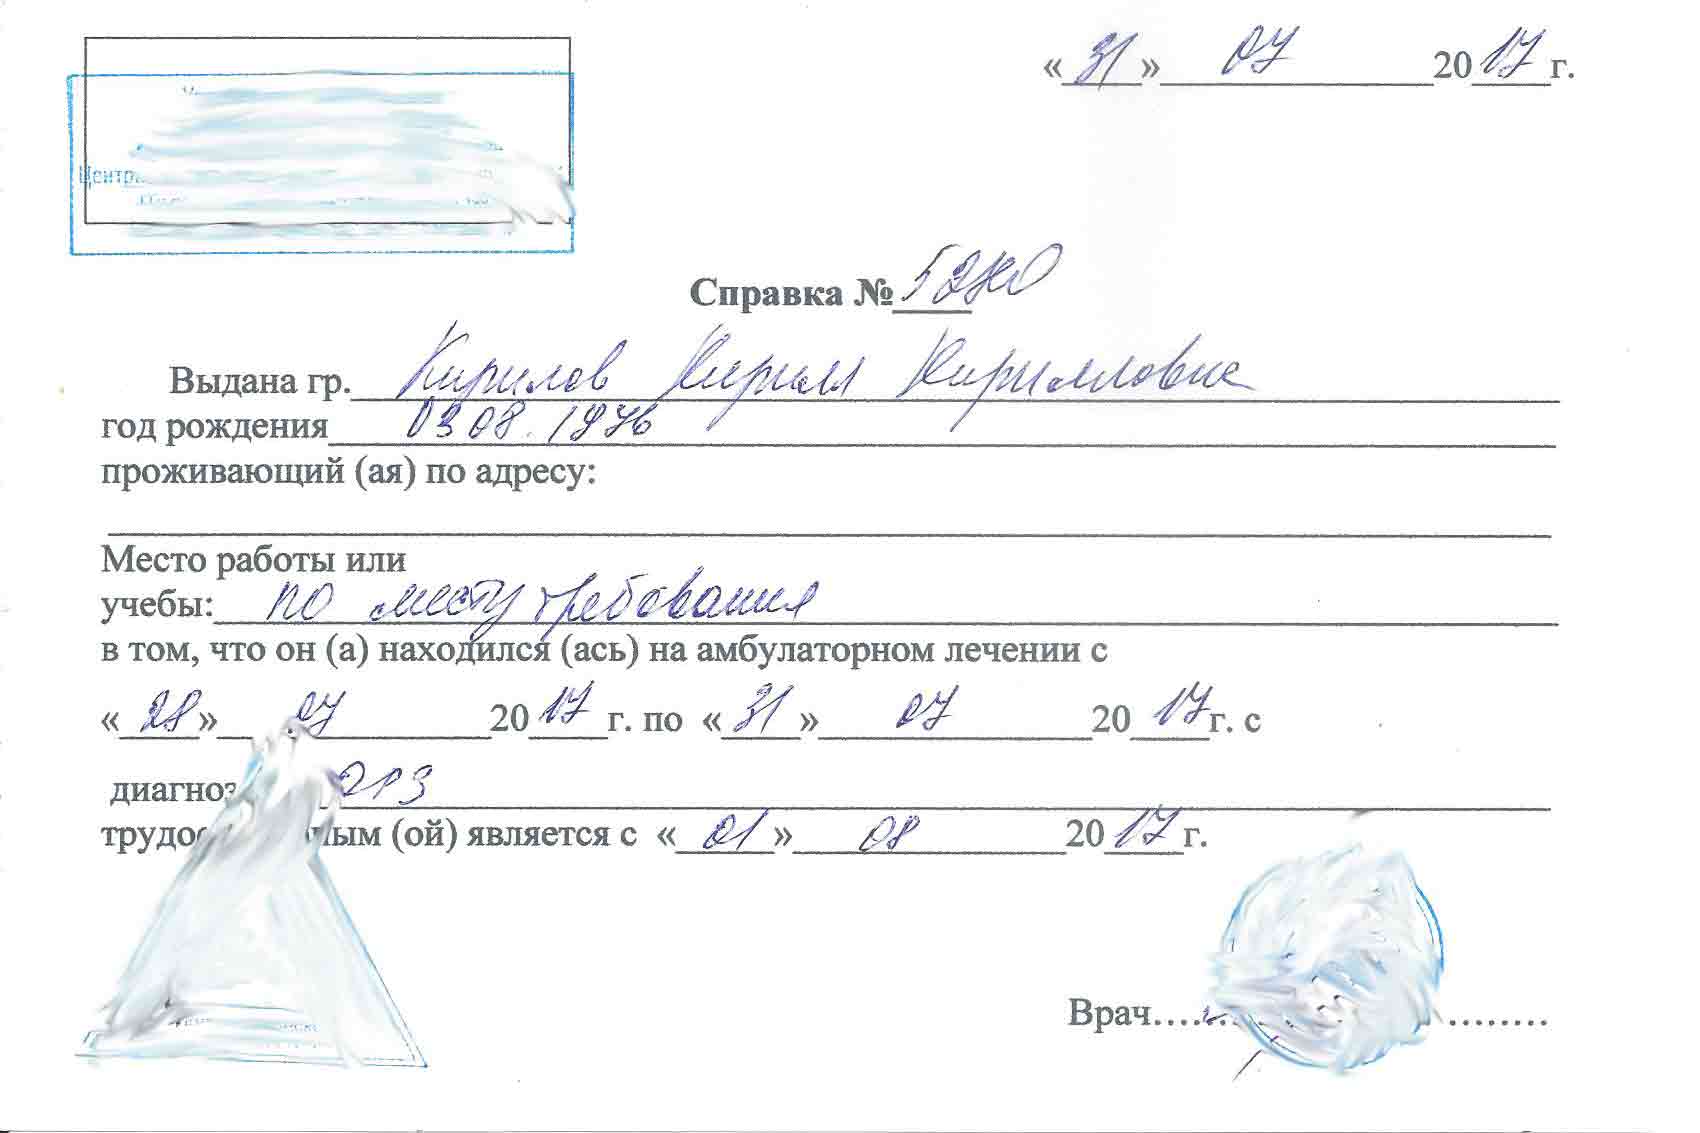 «31» 07 2017г.
Центр
Справка № 5270
Выдана гр. Кирилов Кирилл Кириллович
год рождения 03 08. 1976
проживающий (ая) по адресу:
Место работы или
учебы: по месту требования
в том, что он (а) находился (ась) на амбулаторном лечении с
«28» 07 2017г. по «31» 07 2017г. с
диагноз ОРЗ
трудос ным (ой) является с «01» 08 2017г.
Врач